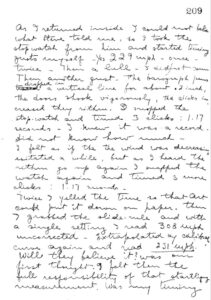 209
As I returned inside I could not believe
what Steve told me, so I took the
stopwatch from him and started timing
gusts myself. 229 mph - once -
twice. Then a lull. I adjust
Then another gust. The barograph pens
dropped in
a vertical line for about .2 ind.,
the doors shook vigorously, the clicks in-
creased they when. I snapped the
stop-watch and timed 3 clicks : 1.17
seconds - I knew it was a record.
did not know how much -
I felt as if the wind was decreas-
itself a while, but as I heard the
go up again I snapped the
watch again and timed 3 more
clicks : 1.17 seconds -
Twice I yelled the time so that Art
could put it down on paper. Then
I grabbed the slide-rule and with
a single setting I read 308 mph
uncorrected. Extrapolated by calibration
curve again and read 231 mph
"Will they believe it?" was our
first thought. I felt then the
full responsibility of that startling
measurement. Was my timing